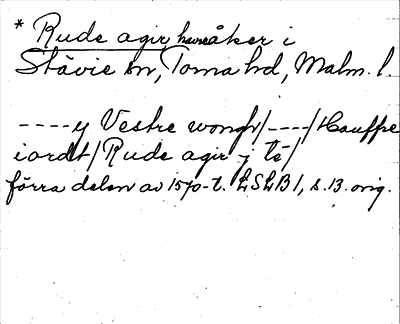 * Rude agir, havreåker i
Stävie sn, Torna hd, Malm. l.
----y Vestre wongh/----/Hauffre
iordt/Rude agir j tē/
förra delen av 1570-t. LSLB 1, s. 13. orig.